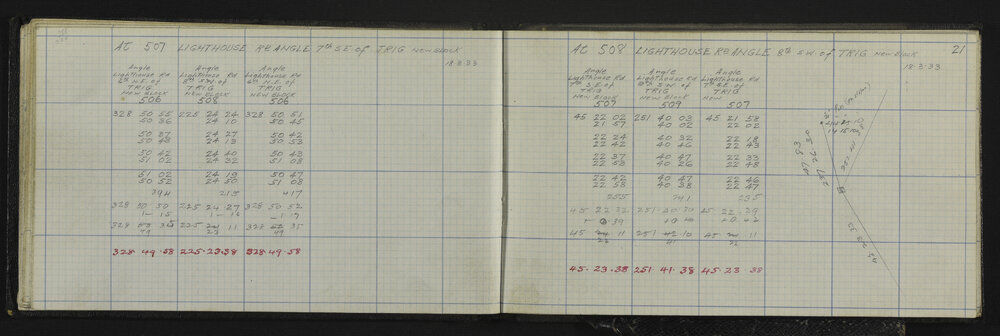 AT 507 LIGHTHOUSE Rd ANGLE 7th S.E of TRIG NEW BLOCK
18.3.33
Angle Angle Angle
Lighthouse Rd Lighthouse Rd Lighthouse Rd
6th N.E. of 8th S.W. of 6th N.E. of
TRIG TRIG TRIG
NEW BLOCK NEW BLOCK NEW BLOCK
506 508 506
328 50 55 225 24 24 328 50 51
50 36 24 10 50 45
50 37 24 27 50 42
50 43 24 13 50 53
50 42 24 40 50 43
51 02 24 32 51 08
51 02 24 19 50 47
50 52 24 50 51 08
394 215 417
328 50 50 225 24 27 328 50 52
328 49 58 225 23 38 328 49 58
AT 508 LIGHTHOUSE Rd ANGLE 8th S.W. of TRIG NEW BLOCK
21
18.3.33
Angle Angle Angle
Lighthouse Rd Lighthouse Rd Lighthouse Rd
7th S.E. of 9th S.W. of 7th S.E. of
TRIG TRIG TRIG
NEW BLOCK NEW BLOCK NEW
507 509 507
45 22 02 251 40 03 45 21 58
21 57 40 02 22 02
22 24 40 32 22 18
22 42 40 46 22 43
22 37 40 47 22 33
22 53 40 26 22 48
22 42 40 47 22 46
22 58 40 38 22 47
255 241 235
45 22 32 251 40 30 45 22 29
45 23 38 251 41 38 45 23 38